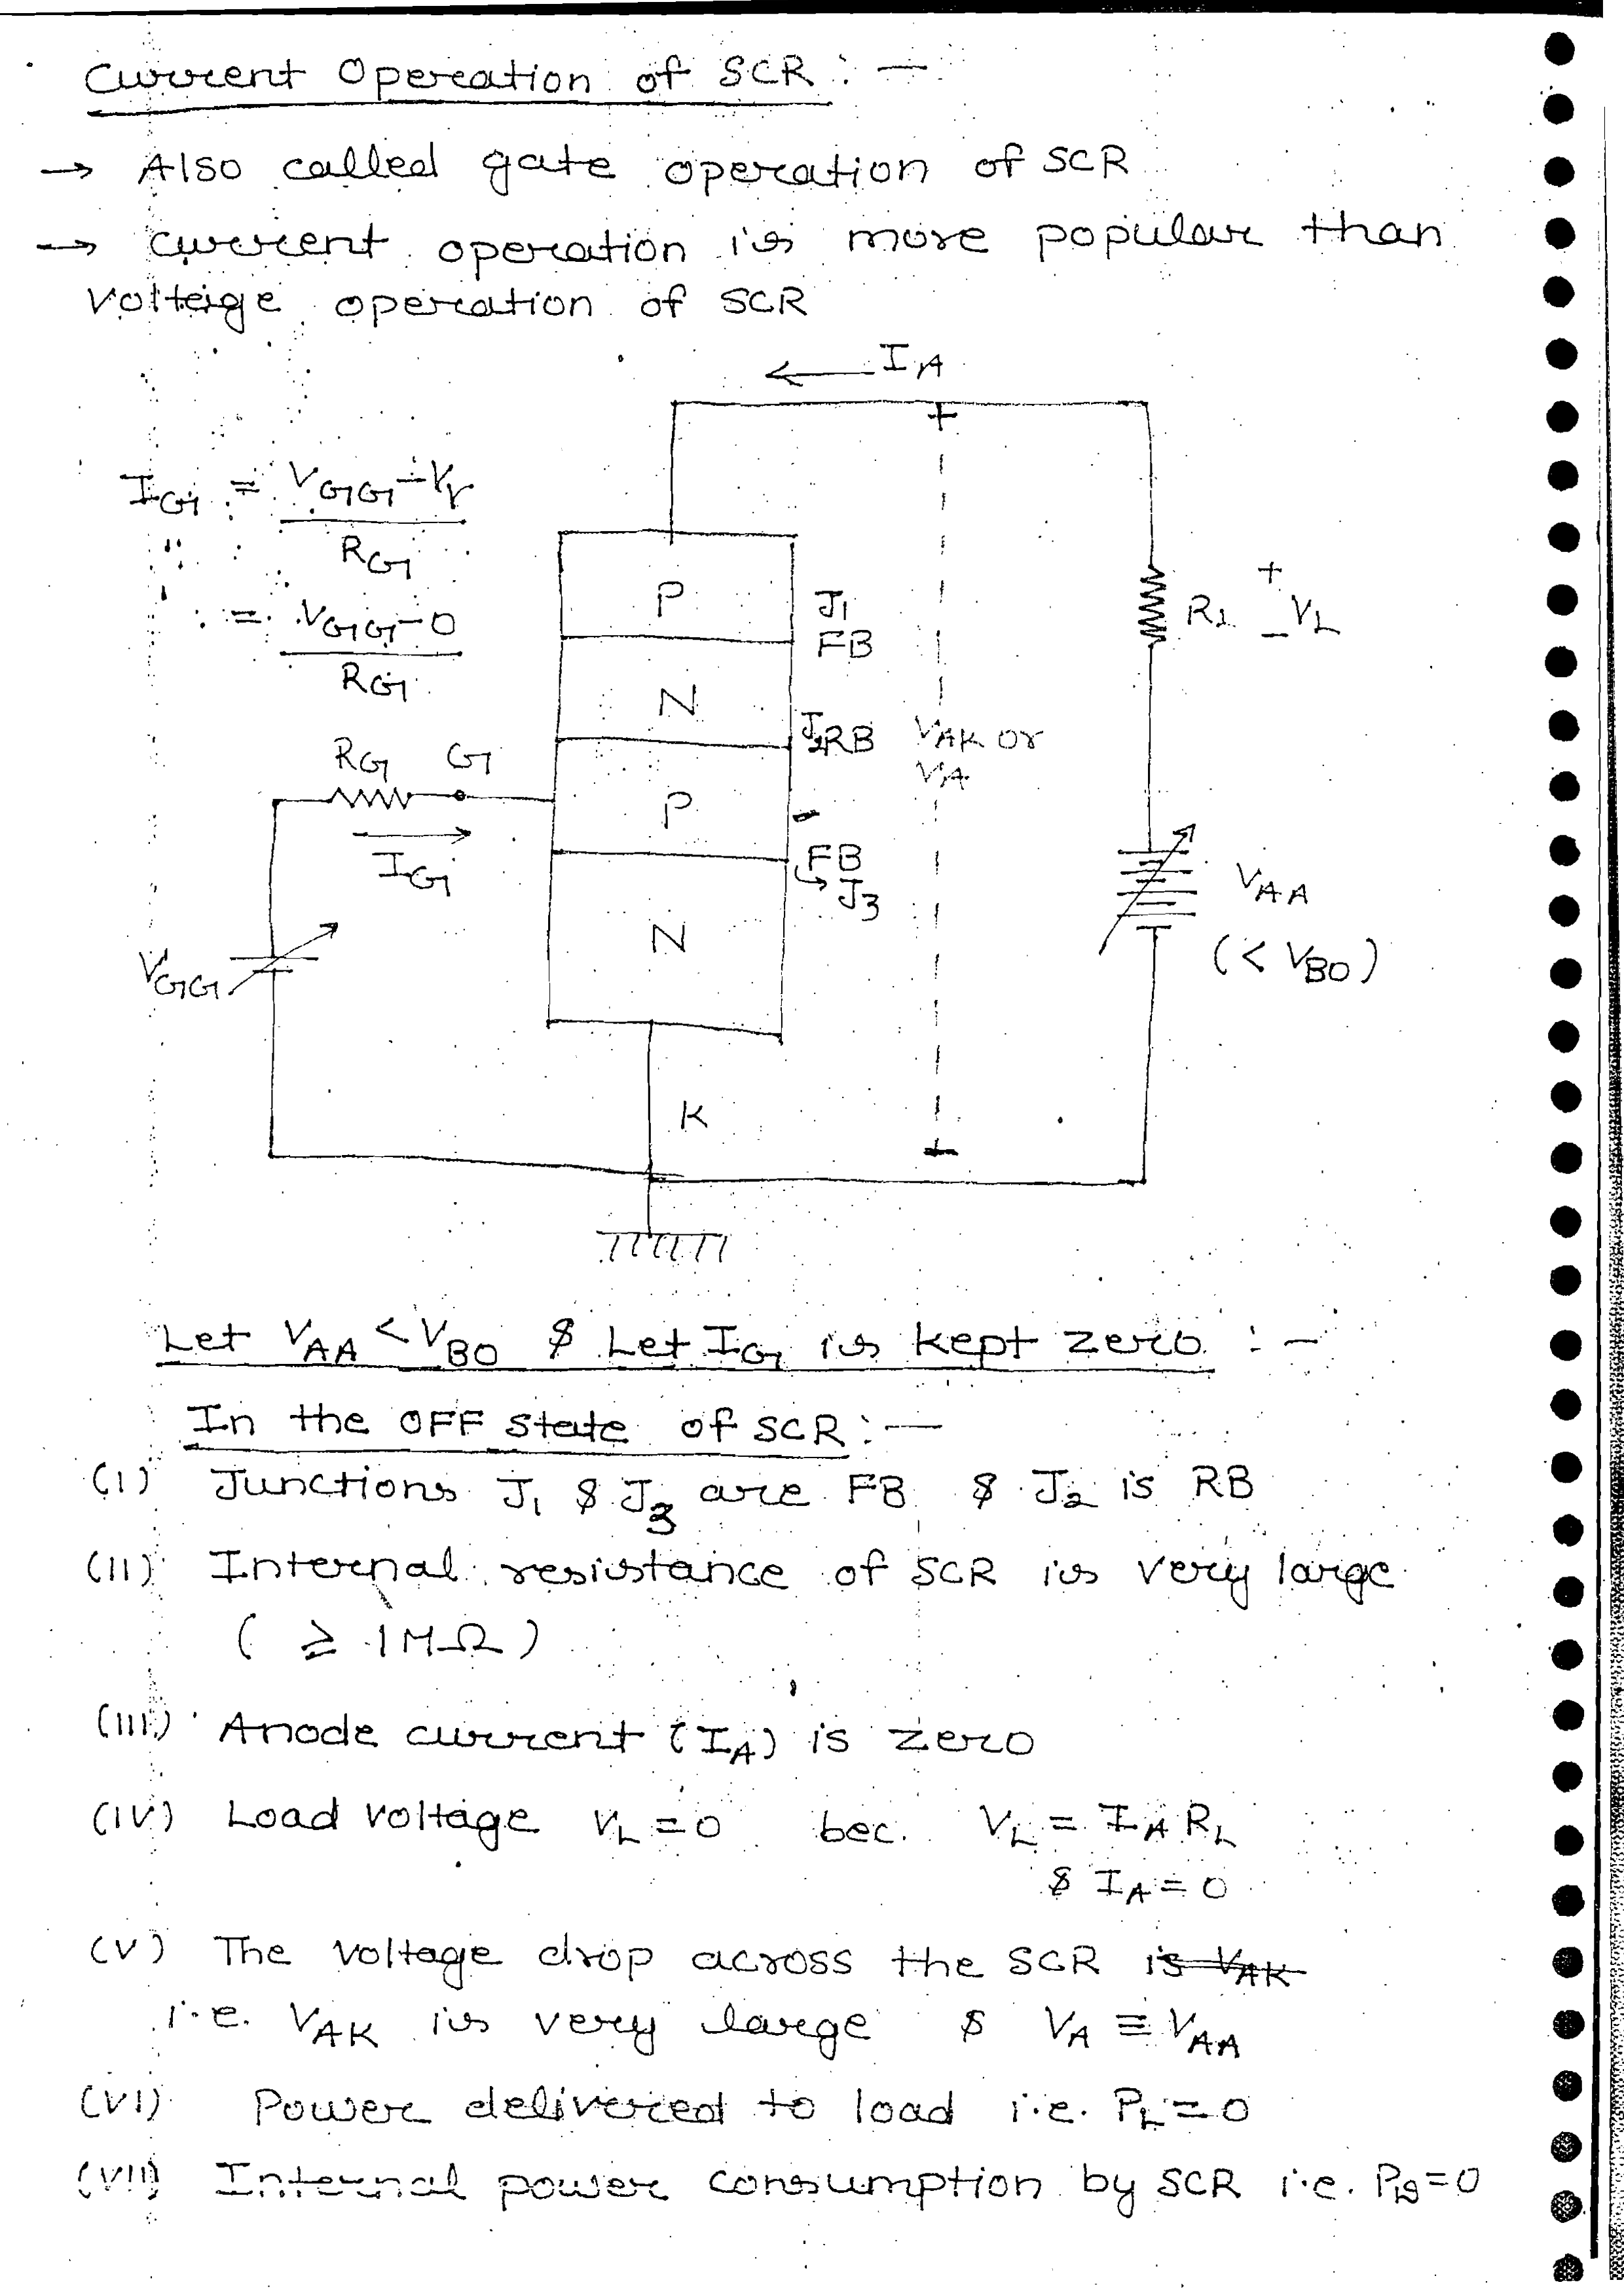 Current Operation of SCR : —
→ Also called gate operation of SCR
→ current operation is more popular than
Voltage operation of SCR
← I_A
+
I_G = V_GG - V_γ
R_G
= V_GG - 0
R_G
P
J1
FB
+
R_L V_L
-
N
J2 RB
V_AK or
V_A
R_G G
P
I_G
FB
↳ J3
V_AA
(< V_BO)
N
V_GG
K
-
Let V_AA < V_BO & Let I_G is kept zero : —
In the OFF state of SCR : —
(I) Junctions J1 & J3 are FB & J2 is RB
(II) Internal resistance of SCR is very large
( ≥ 1MΩ )
(III) Anode current (I_A) is zero
(IV) Load voltage V_L = 0 bec. V_L = I_A R_L
& I_A = 0
(V) The voltage drop across the SCR is V_AK
i.e. V_AK is very large & V_A ≡ V_AA
(VI) Power delivered to load i.e. P_L = 0
(VII) Internal power consumption by SCR i.e. P_is = 0